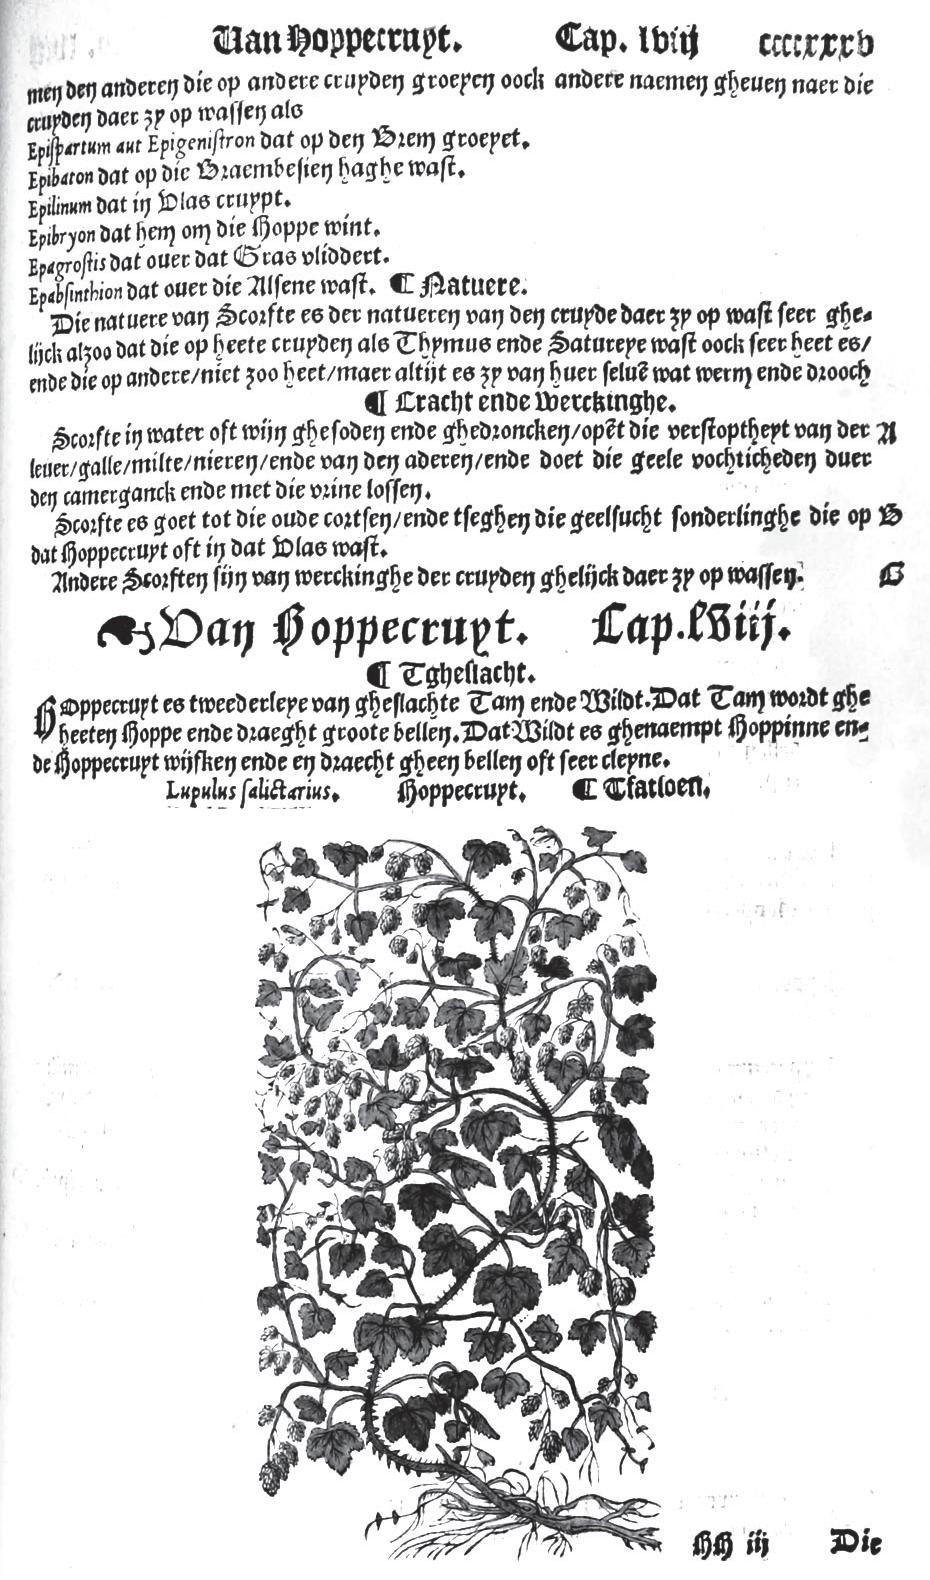 Van Hoppecruyt. Cap. lviij ccccxxxv
men den anderen die op andere cruyden groeyen oock andere naemen gheuen naer die
cruyden daer zy op wassen als
Epispartum aut Epigenistron dat op den Brem groeyet.
Epibaton dat op die Braembesien haghe wast.
Epilinum dat in Vlas cruypt.
Epibryon dat hem om die Hoppe wint.
Epagrostis dat ouer dat Gras vliddert.
Epabsinthion dat ouer die Alsene wast. ¶ Natuere.
Die natuere van Scorfte es der natueren van den cruyde daer zy op wast seer ghe-
lijck alzoo dat die op heete cruyden als Thymus ende Satureye wast oock seer heet es/
ende die op andere/niet zoo heet/maer altijt es zy van huer seluẽ wat werm ende drooch
¶ Cracht ende Werckinghe.
Scorfte in water oft wijn ghesoden ende ghedroncken/opẽt die verstoptheyt van der A
leuer/galle/milte/nieren/ende van den aderen/ende doet die geele vochticheden duer
den camerganck ende met die vrine lossen.
Scorfte es goet tot die oude cortsen/ende tseghen die geelsucht sonderlinghe die op B
dat Hoppecruyt oft in dat Vlas wast.
Andere Scorften sijn van werckinghe der cruyden ghelijck daer zy op wassen. C
☙ Van Hoppecruyt. Cap. lviij.
¶ Tgheslacht.
HOppecruyt es tweederleye van gheslachte Tam ende Wildt. Dat Tam wordt ghe
heeten Hoppe ende draeght groote bellen. Dat Wildt es ghenaempt Hoppinne en-
de Hoppecruyt wijfken ende en draecht gheen bellen oft seer cleyne.
Lupulus salictarius. Hoppecruyt. ¶ Tfatsoen.
HH iij Die